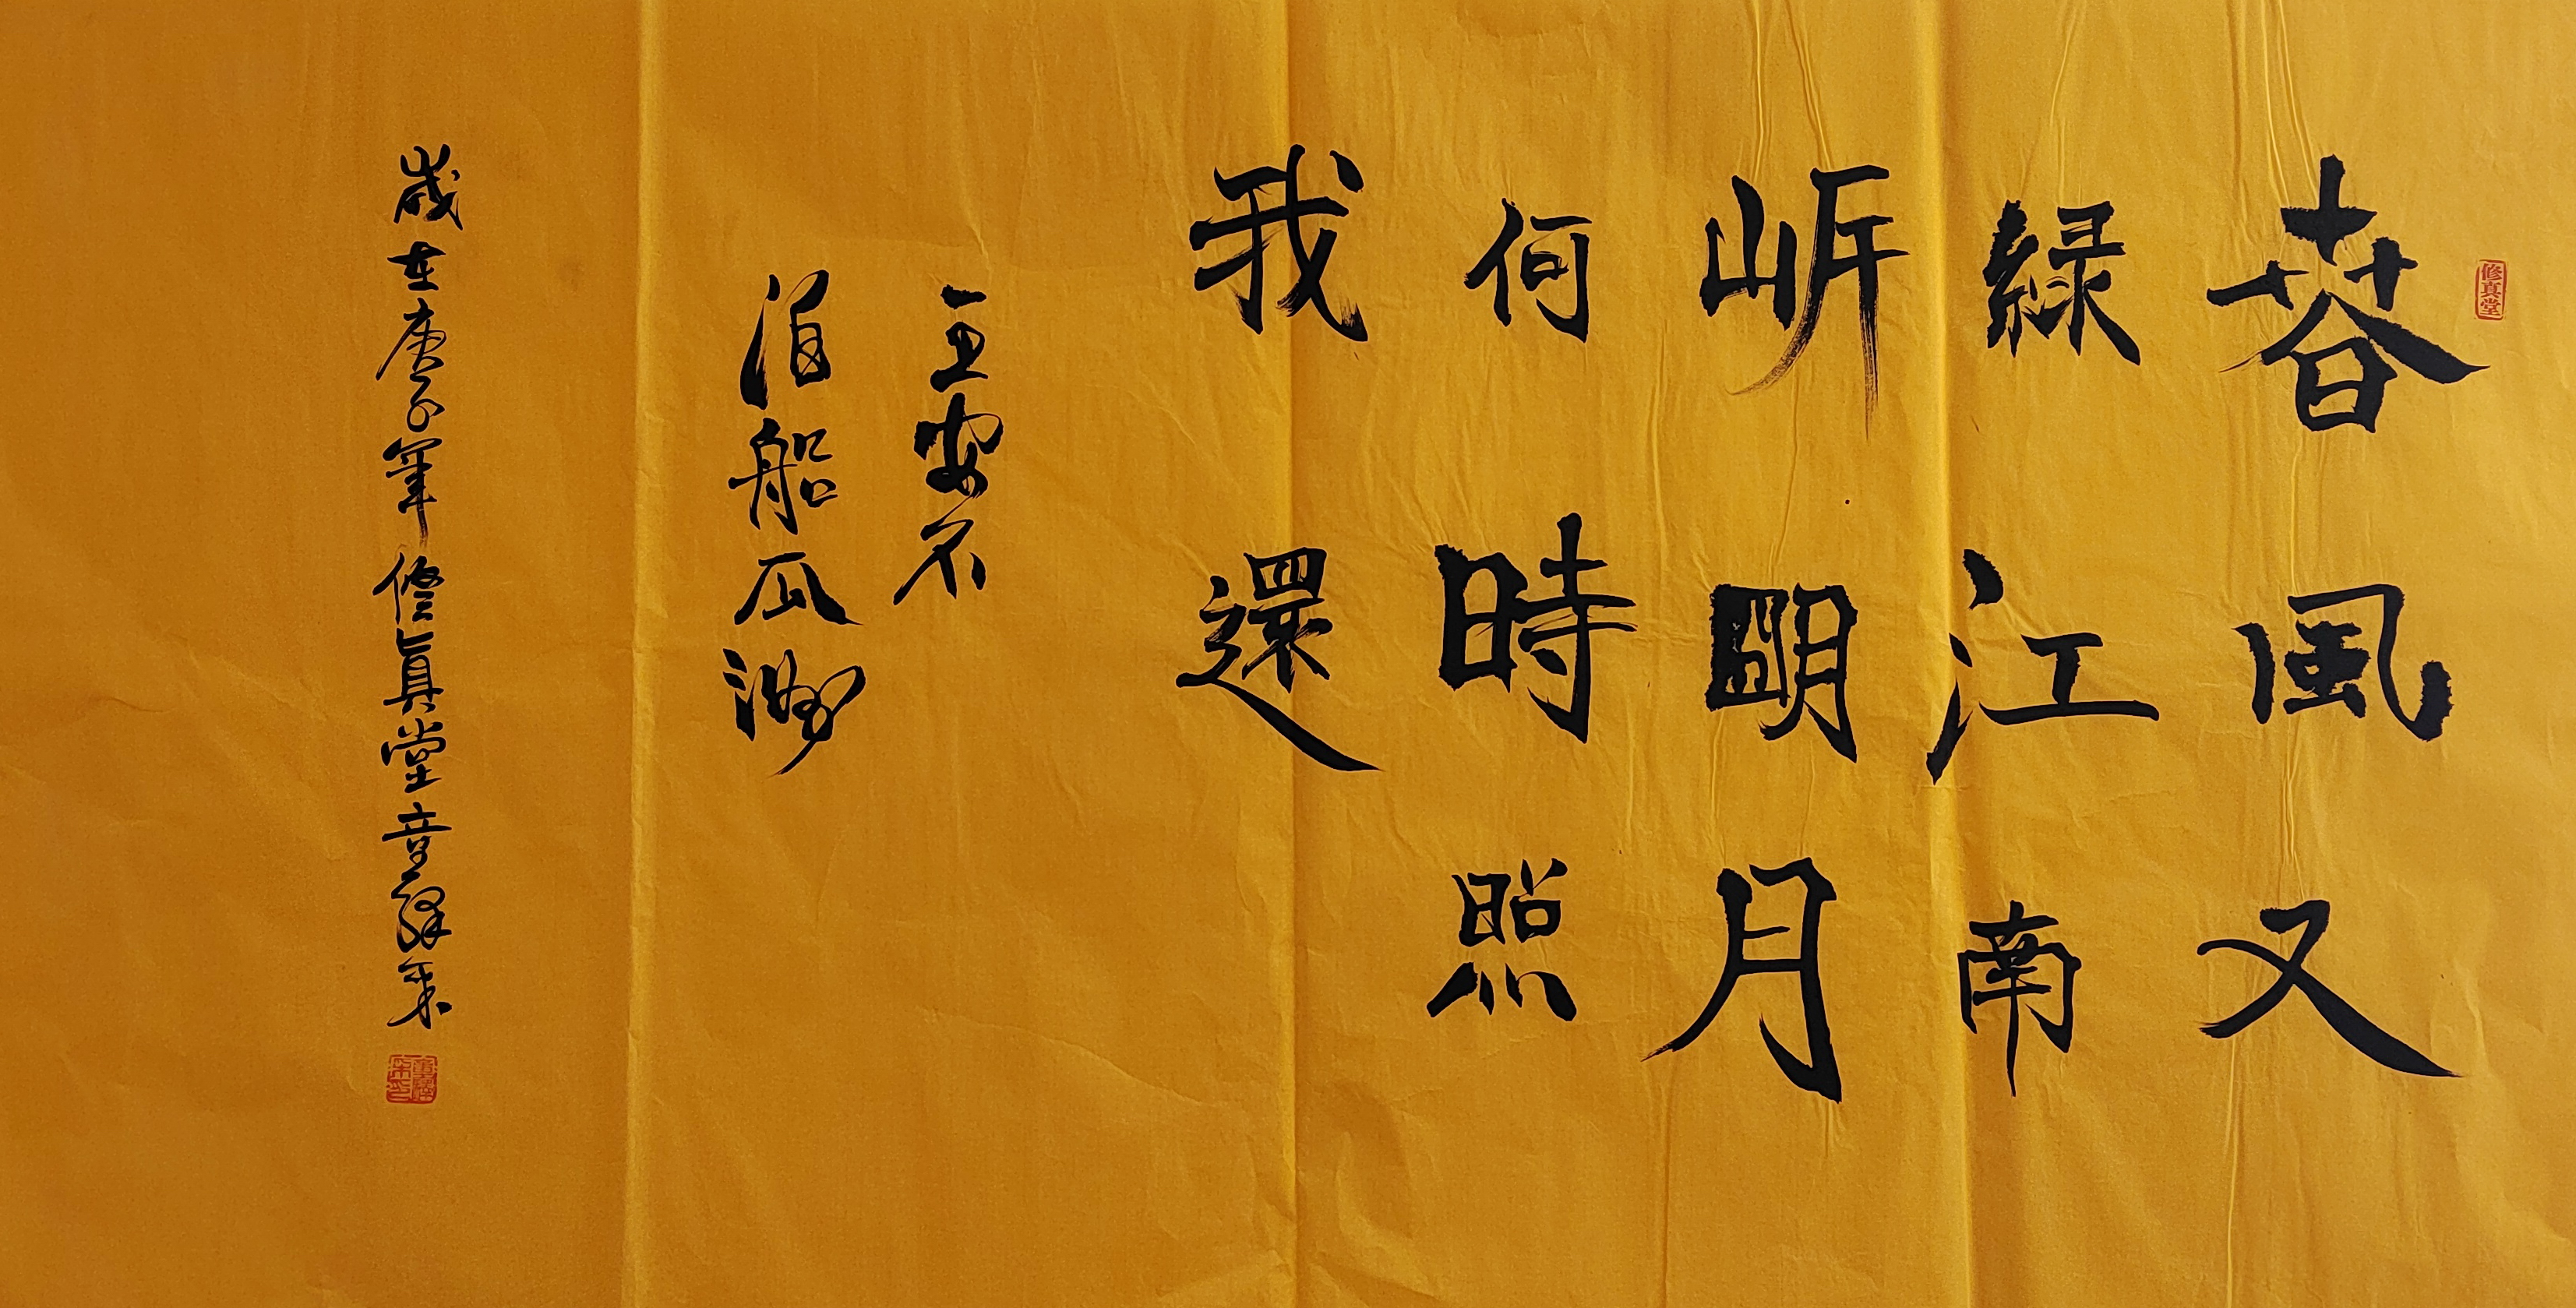 修真堂
春風又
綠江南
岍明月
何時照
我還
王安石
泊船瓜洲
歲在庚子年修真堂章